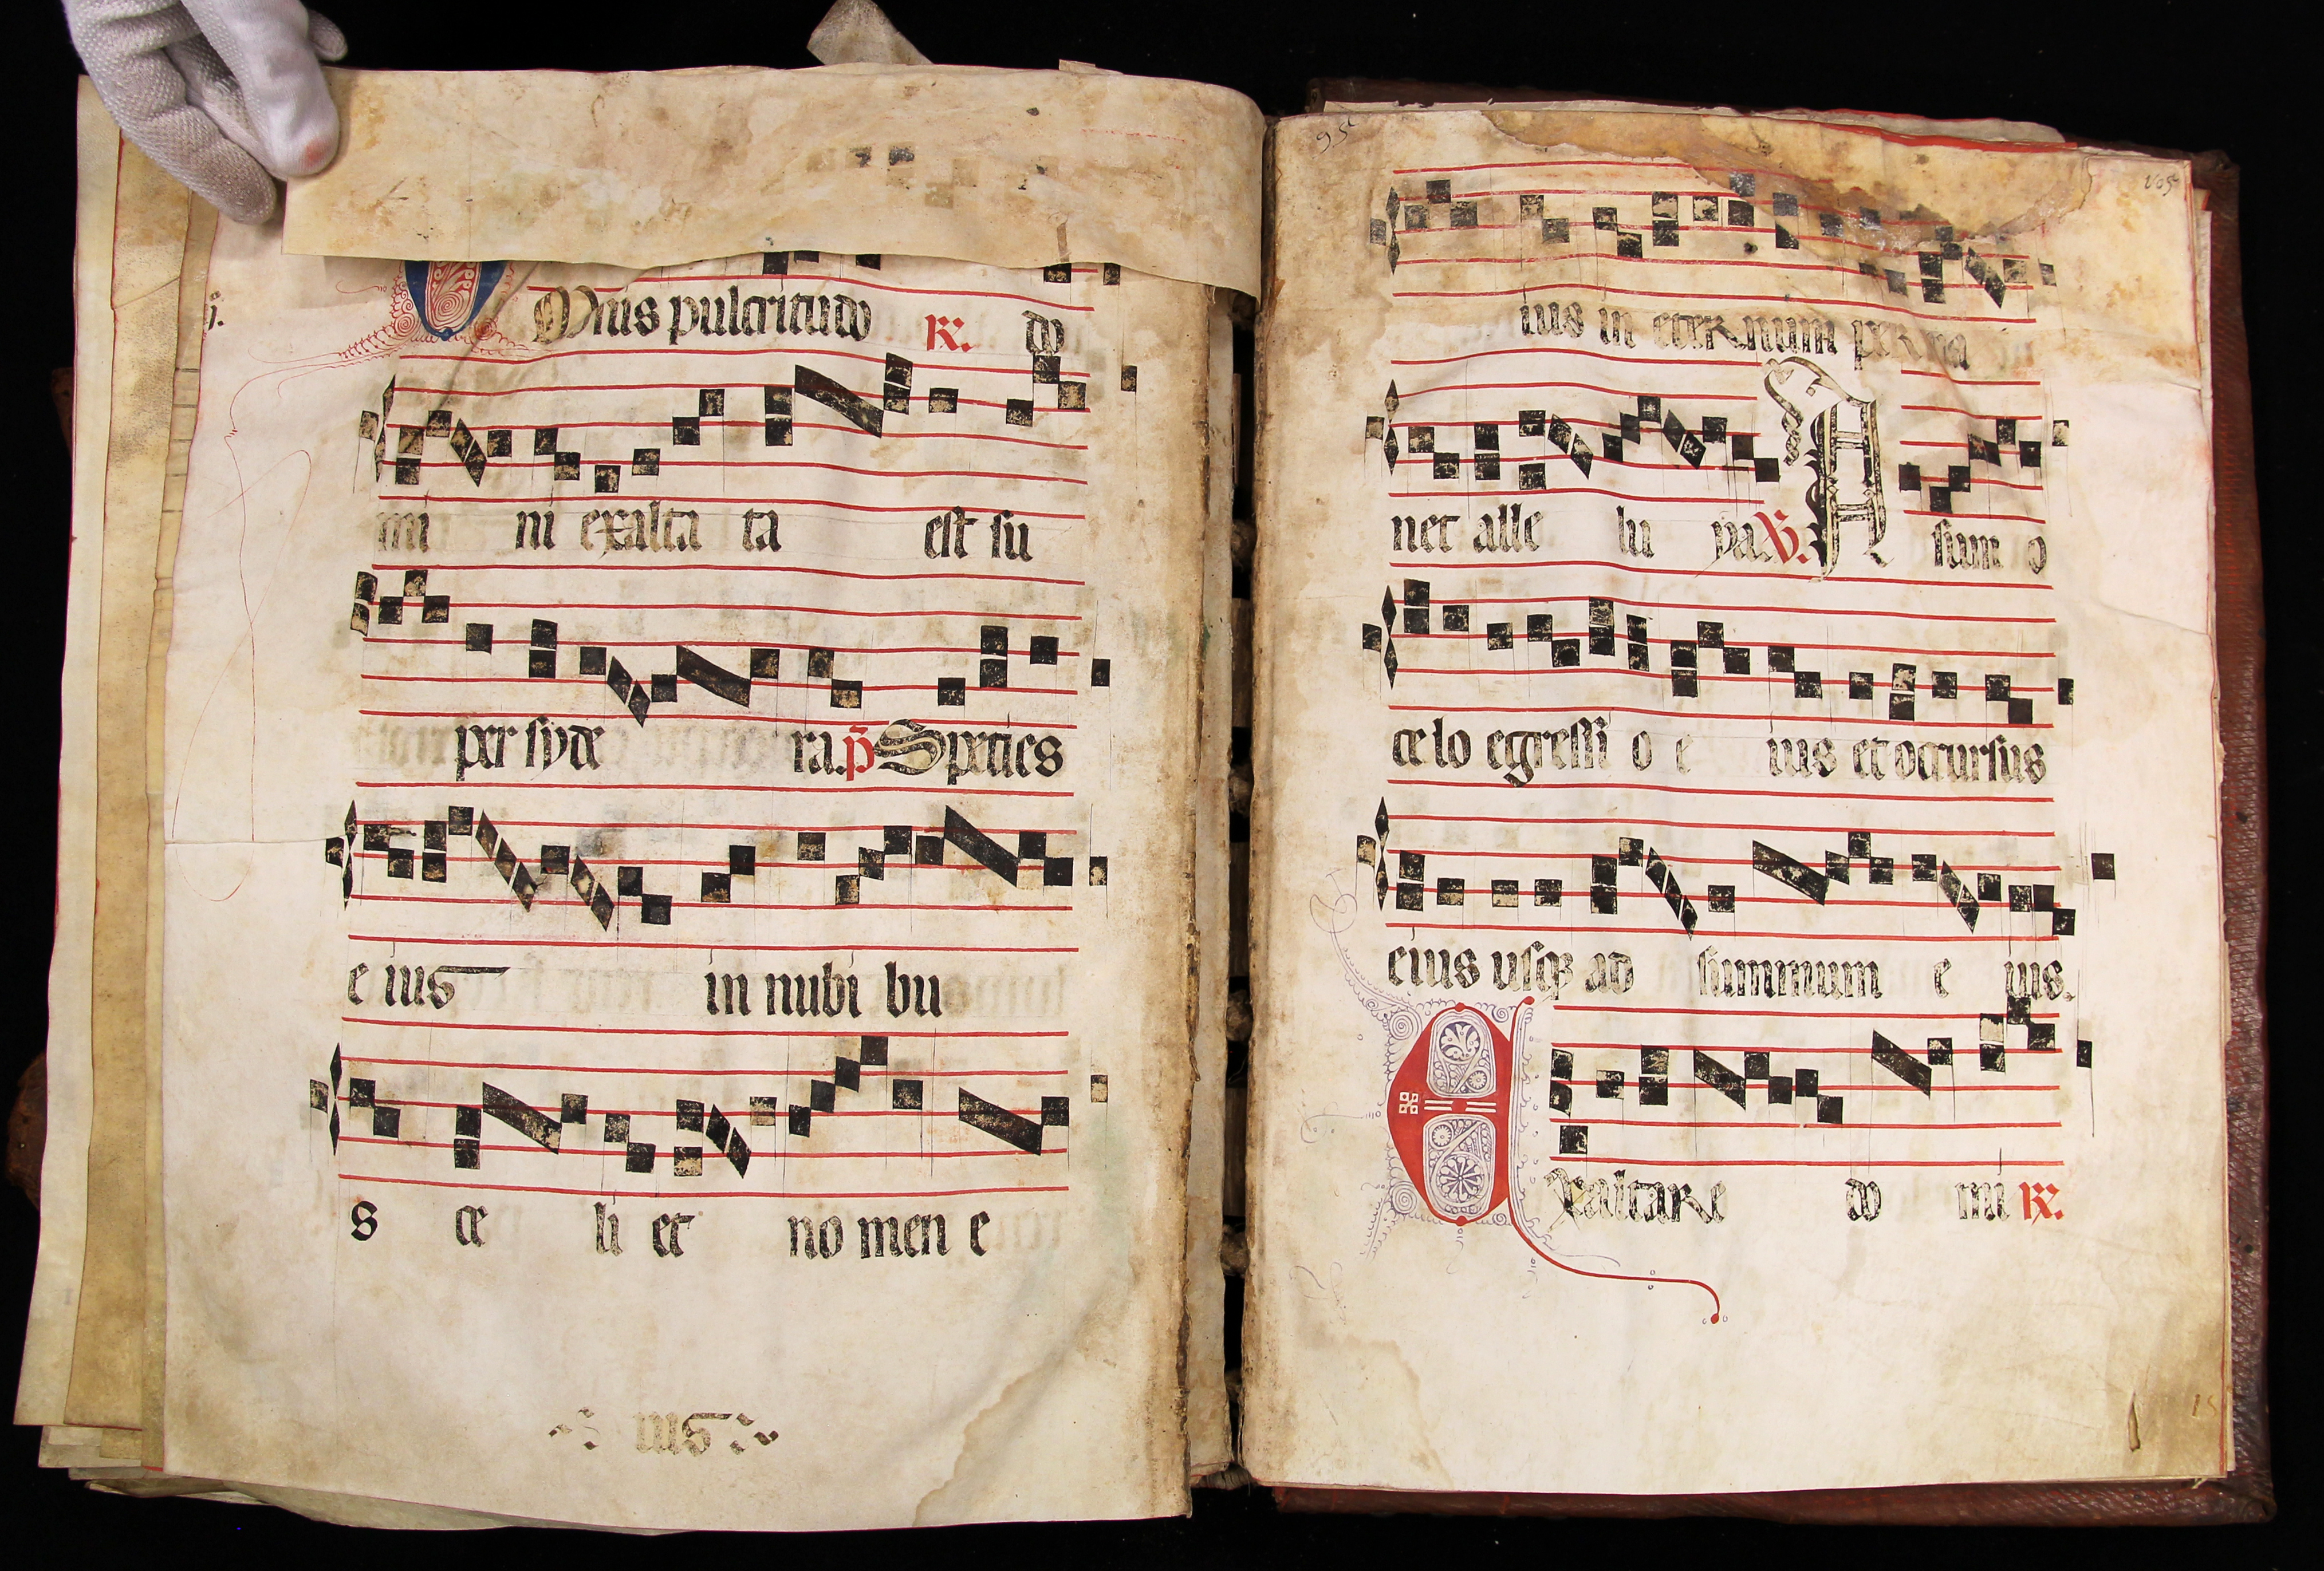 j.
Omnis pulcritudo ℟. do
mi ni exalta ta est su
per syde ra. p̄ Species
e ius in nubi bu
s ce li et no men e
ius
95
105
ius in eternum perma
net alle lu ya. ℣. A sum o
ce lo egressi o e ius et occursus
eius usqꝫ ad summum e ius.
Exaltare do mi ℟.
15